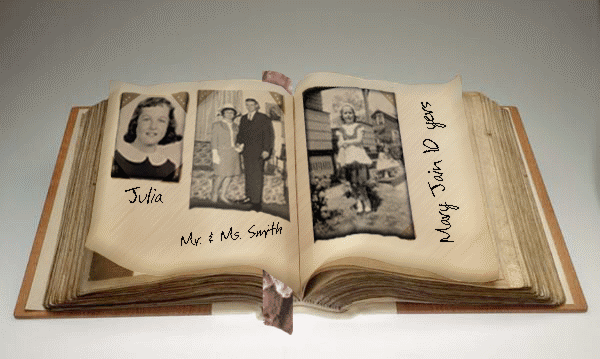 Julia
Mr. & Ms. Smith
Mary Jain 10 yers